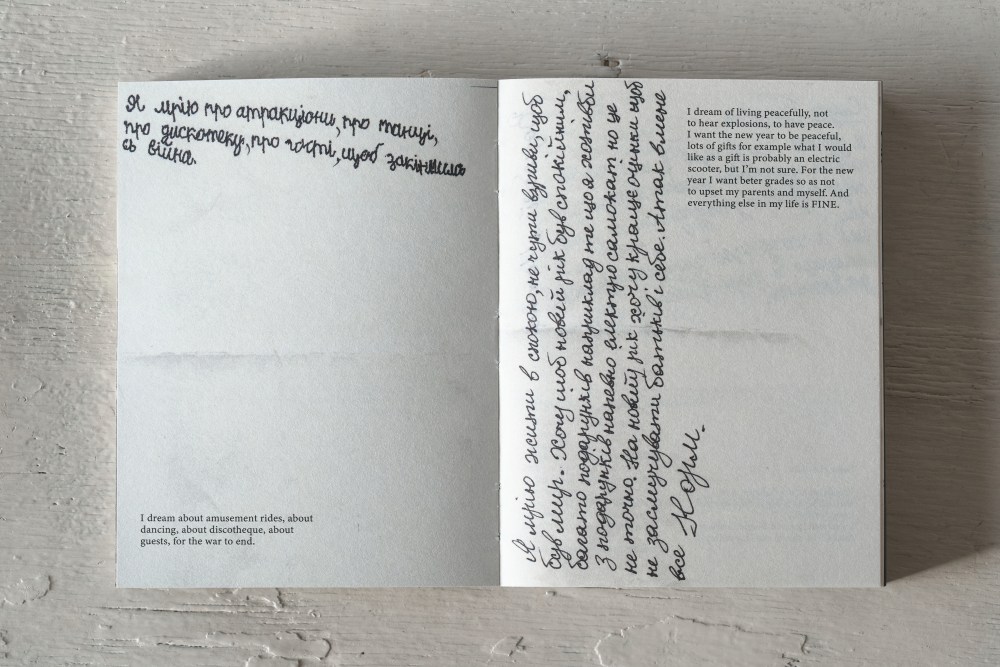 Я мрію про атракціони, про танці,
про дискотеку, про гості, щоб закінчила
сь війна.
I dream about amusement rides, about
dancing, about discotheque, about
guests, for the war to end.
Я мрію жити в спокою, не чути взриви, щоб
був мир. Хочу щоб новий рік був спокійним,
багато подарунків наприклад те що я хотів би
з подарунків напевно електро самокат но це
не точно. На новий рік хочу краще оцінки щоб
не засмучувати батьків і себе. А так в мене
все Норм.
I dream of living peacefully, not
to hear explosions, to have peace.
I want the new year to be peaceful,
lots of gifts for example what I would
like as a gift is probably an electric
scooter, but I'm not sure. For the new
year I want beter grades so as not
to upset my parents and myself. And
everything else in my life is FINE.